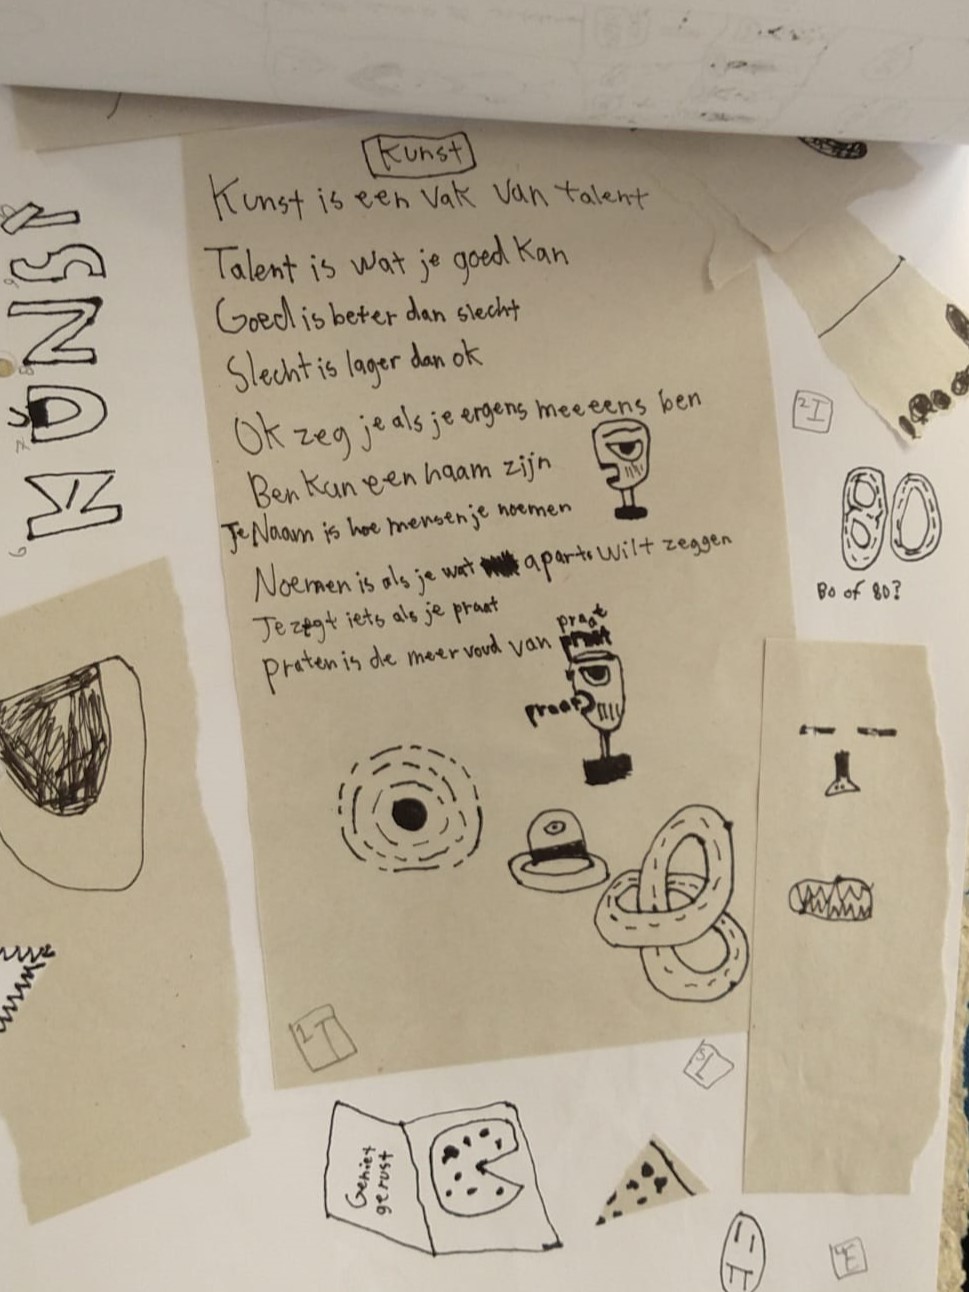 Kunst
Kunst is een vak van talent
Talent is wat je goed kan
Goed is beter dan slecht
Slecht is lager dan ok
Ok zeg je als je ergens meeeens ben
Ben kan een naam zijn
Je Naam is hoe mensen je noemen
Noemen is als je wat aparts wilt zeggen
Je zegt iets als je praat
praten is de meervoud van praat
praat
KUNST
2I
80 of 80?
1T
3L
Geniet
gerust
4E